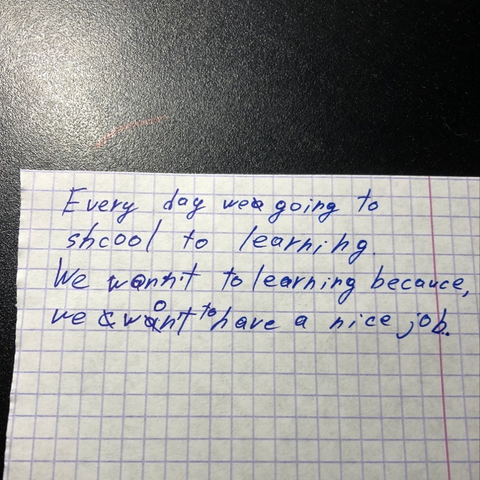 Every day wea going to
shcool to learning.
We wonnt to learning becauce,
we want to have a nice job.